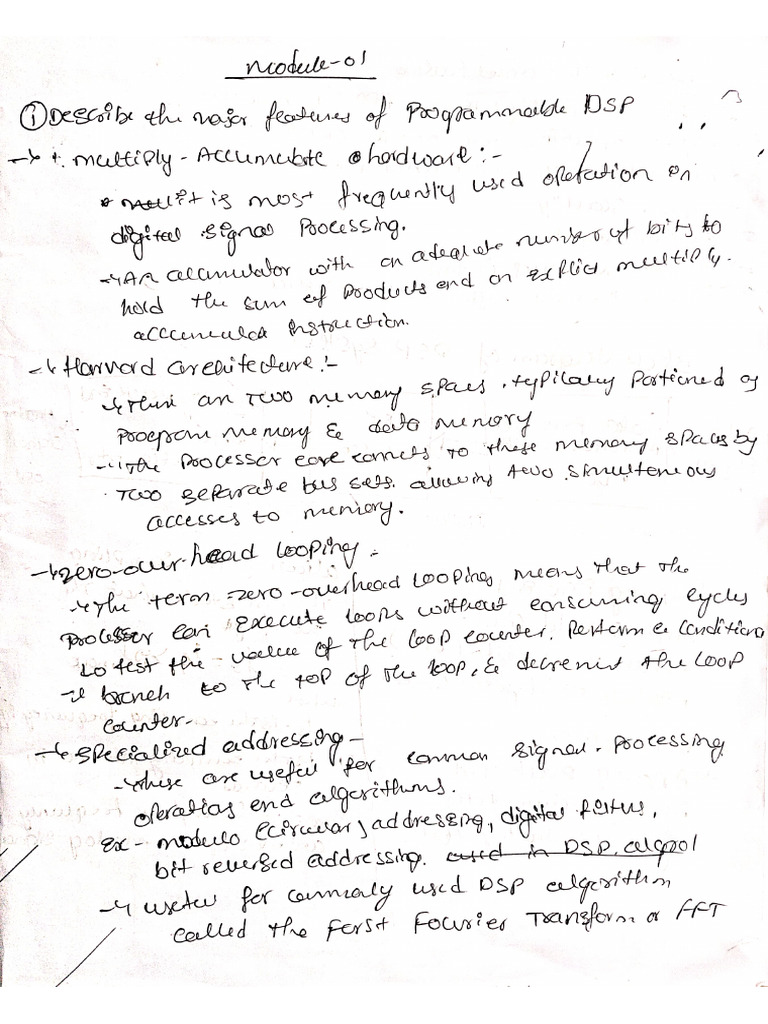 Module-01
① Describe the major features of Programmable DSP
→ Multiply-Accumulate hardware:-
it is most frequently used operation on
digital signal Processing.
→ An accumulator with an adequate number of bits to
hold the sum of Products and an explicit multiply-
accumulator Instruction.
→ Harvard architecture:-
→ There are two memory spaces, typically Partioned as
Program memory & data memory
→ The Processer core connects to these memory spaces by
two separate bus sets, allowing two simultenious
accesses to memory.
→ zero-over-head looping:-
→ The term zero-overhead looping means that the
Processer can execute loops without consuming cycles
to test the value of the loop counter. Perform a condition
al branch to the top of the loop, & decrement the loop
counter-
→ specialized addressing-
→ these are useful for common signal-processing
operations and algorithms.
Ex- modulo (circular) addressing, digital filters,
bit reversed addressing. used in DSP. algool
→ useful for commonly used DSP algorithm
called the first Fourier Transform or FFT